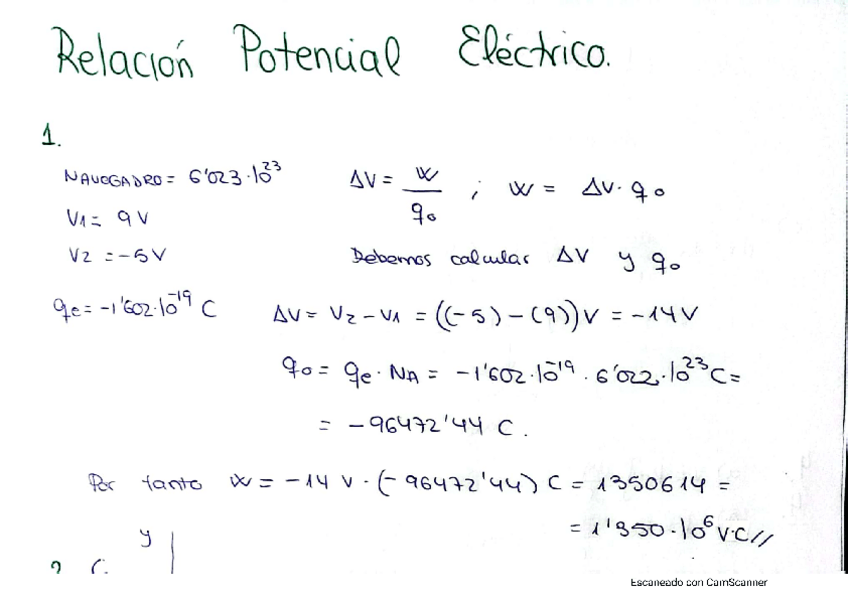 Relación Potencial Eléctrico.
1.
NAVOGADRO = 6'023·10²³
ΔV = W/q₀ ; W = ΔV·q₀
V1 = 9V
V2 = -5V
Debemos calcular ΔV y q₀
qe = -1'602·10⁻¹⁹ C
ΔV = V2 - V1 = ((-5) - (9))V = -14V
q₀ = qe · NA = -1'602·10⁻¹⁹ · 6'022·10²³ C =
= -96472'44 C.
Por tanto W = -14 V · (-96472'44) C = 1350614 =
= 1'350·10⁶ V·C//
y
2
Escaneado con CamScanner